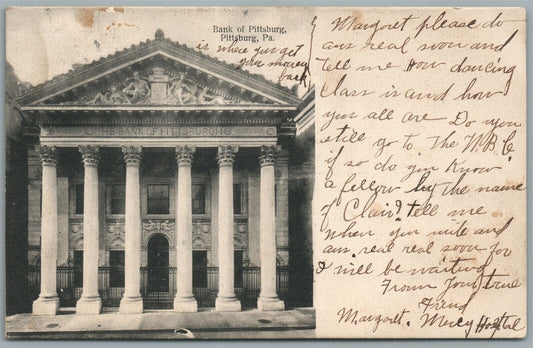 Bank of Pittsburg,
Pittsburg, Pa.
is where you get
your money
back
THE BANK OF PITTSBURG
Margaret please do
ans real soon and
tell me How dancing
Class is and how
you all are Do you
still go to The M.B.C
if so do you Know
a fellow by the name
of Clair? tell me
when you write and
ans. real real soon for
I will be waiting
From Your true
Friend
Margaret. Mercy Hospital